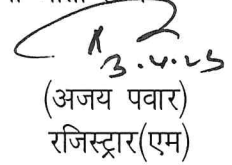 3.4.25
(अजय पवार)
रजिस्ट्रार(एम)